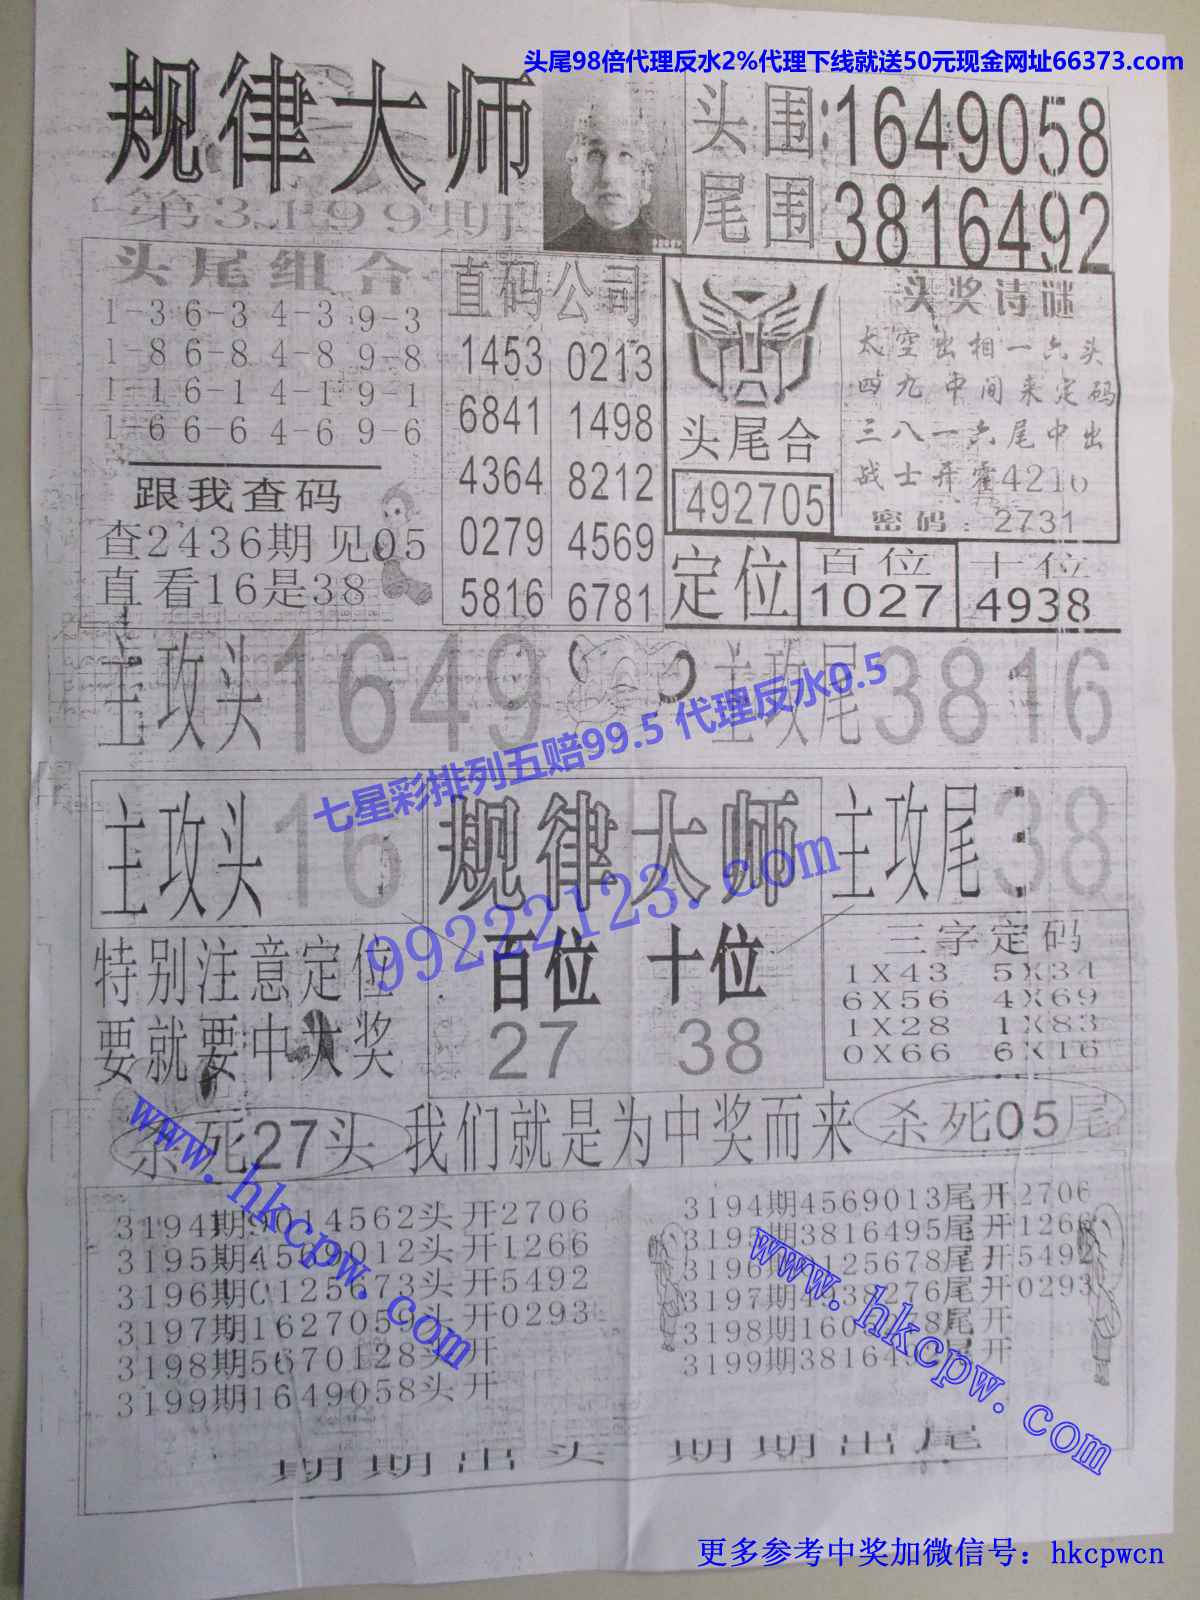 头尾98倍代理反水2%代理下线就送50元现金网址66373.com
规律大师
第3199期
头围:1649058
尾围3816492
头尾组合
1-3 6-3 4-3 9-3
1-8 6-8 4-8 9-8
1-1 6-1 4-1 9-1
1-6 6-6 4-6 9-6
跟我查码
查2436期见05
直看16是38
直码公司
1453 0213
6841 1498
4364 8212
0279 4569
5816 6781
头尾合
492705
头奖诗谜
太空出相一六头
四九中间来定码
三八一六尾中出
战士弃霍4216
密码:2731
定位
百位
1027
十位
4938
主攻头1649
主攻尾3816
七星彩排列五赔99.5 代理反水0.5
99222123.com
主攻头16
规律大师
主攻尾38
特别注意定位
要就要中大奖
百位 十位
27 38
三字定码
1X43 5X34
6X56 4X69
1X28 1X83
0X66 6X16
杀死27头
我们就是为中奖而来
杀死05尾
www.hkcpw.com
3194期9014562头开2706
3195期4569012头开1266
3196期0125673头开5492
3197期1627059头开0293
3198期5670128头开
3199期1649058头开
3194期4569013尾开2706
3195期3816495尾开1266
3196期 125678尾开5492
3197期4938276尾开0293
3198期160 8尾开
3199期381649 尾开
www.hkcpw.com
期期出头 期期出尾
更多参考中奖加微信号：hkcpwcn